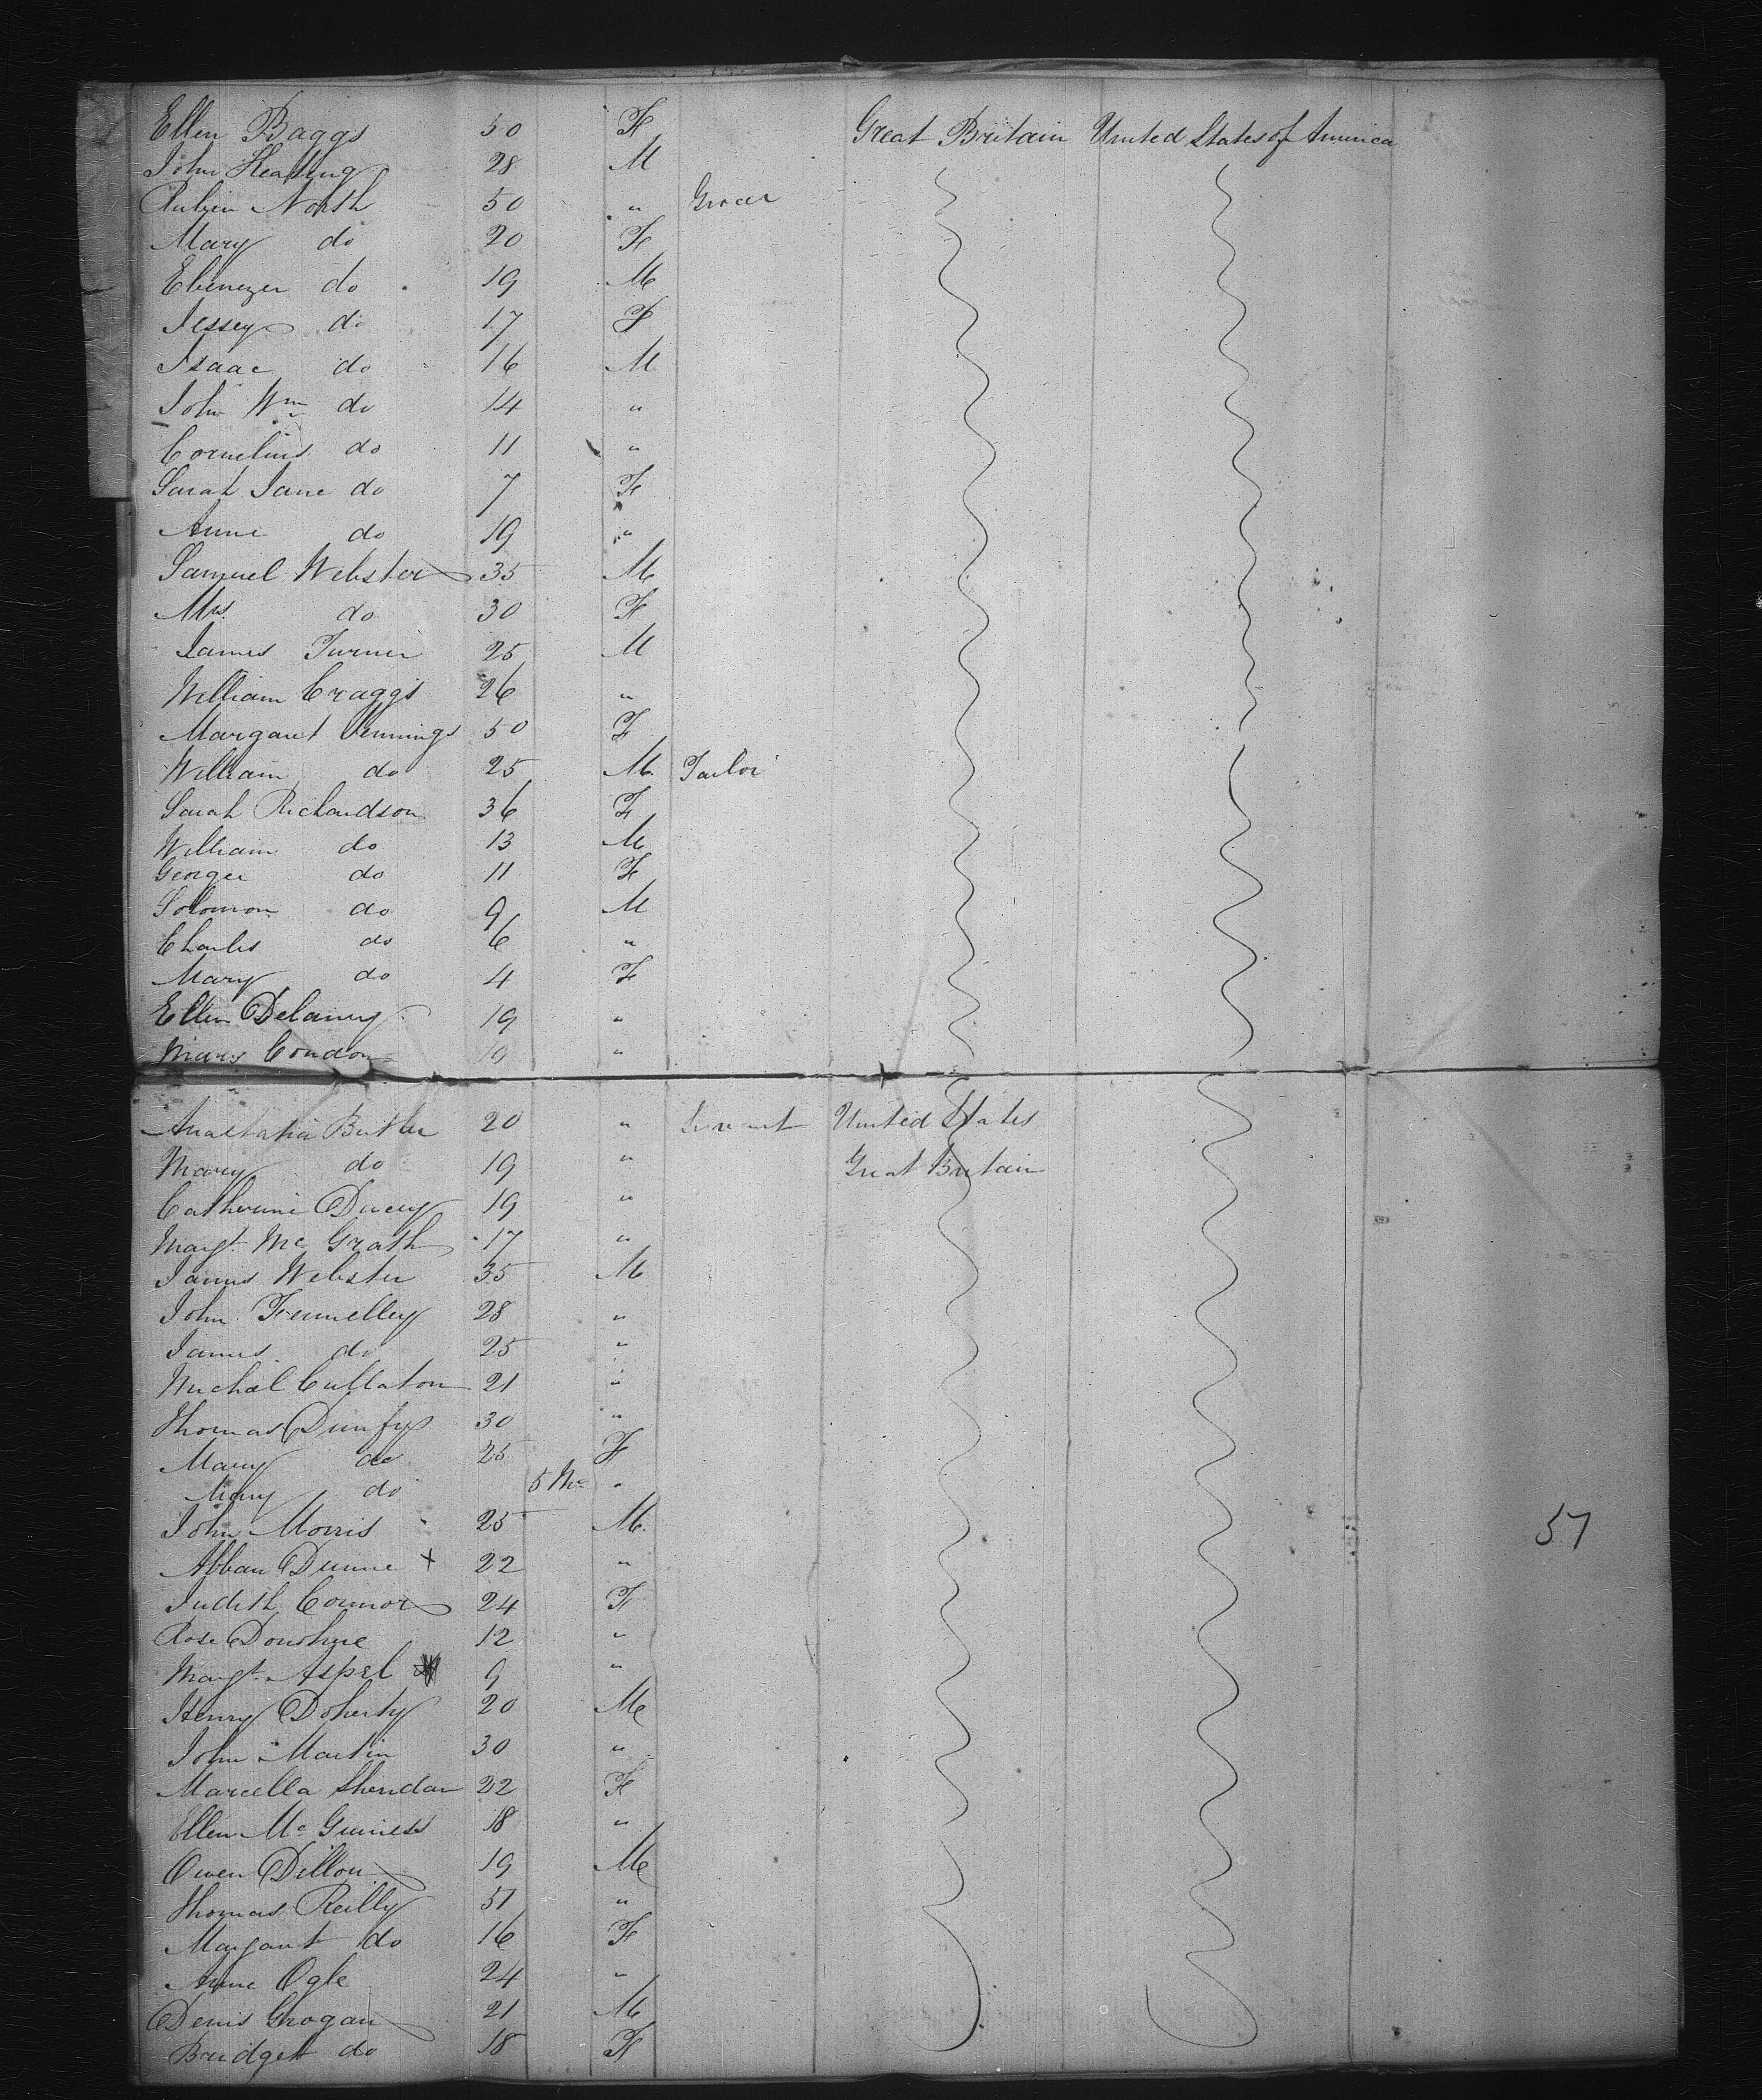 Ellen Baggs 50 F Great Britain United States of America
John Heafing 28 M
Rubin North 50 " Grocer
Mary do 20 F
Ebenezer do 19 M
Jessey do 17 F
Isaac do 16 M
John Wm do 14 "
Cornelius do 11 "
Sarah Jane do 7 F
Anne do 19 "
Samuel Webster 35 M
Mrs. do 30 F
James Turner 25 M
William Craggs 26 "
Margaret Vennings 50 F
William do 25 M. Tailor
Sarah Richardson 36 F
William do 13 M
George do 11 F
Solomon do 9 M
Charles do 6 "
Mary do 4 F
Ellen Delaney 19 "
Mary Condon 19 "
Anastatia Butler 20 " Servant United States
Mary do 19 " Great Britain
Catherine Ducey 19 "
Margt. Mc Grath 17 "
James Webster 35 M
John Fennelley 28 "
James do 25 "
Michael Cullaton 21 "
Thomas Dunfy 30 "
Mary do 25 F
Mary do 5 Ms "
John Morris 25 M. 57
Abban Dunne + 22 "
Judith Connor 24 F
Rose Donohue 12 "
Margt. Aspel 9 "
Henry Doherty 20 M
John Martin 30 "
Marcella Sheridan 22 F
Ellen Mc Guiness 18 "
Owen Dillon 19 M
Thomas Reilly 51 "
Margaret do 16 F
Anne Ogle 24 "
Denis Grogan 21 M
Bridget do 18 F